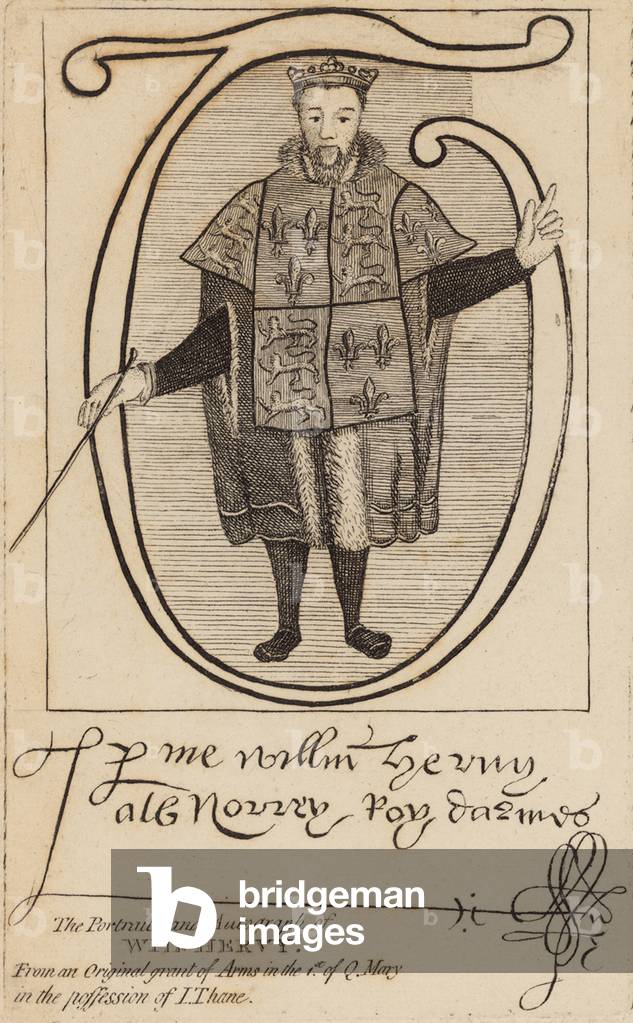 p me willm Hervy
als Norrey Roy darmes
bridgeman
images
The Portrait and Autograph of
WILL. HERVY.
From an Original grant of Arms in the 1.st of Q. Mary
in the possession of I. Thane.